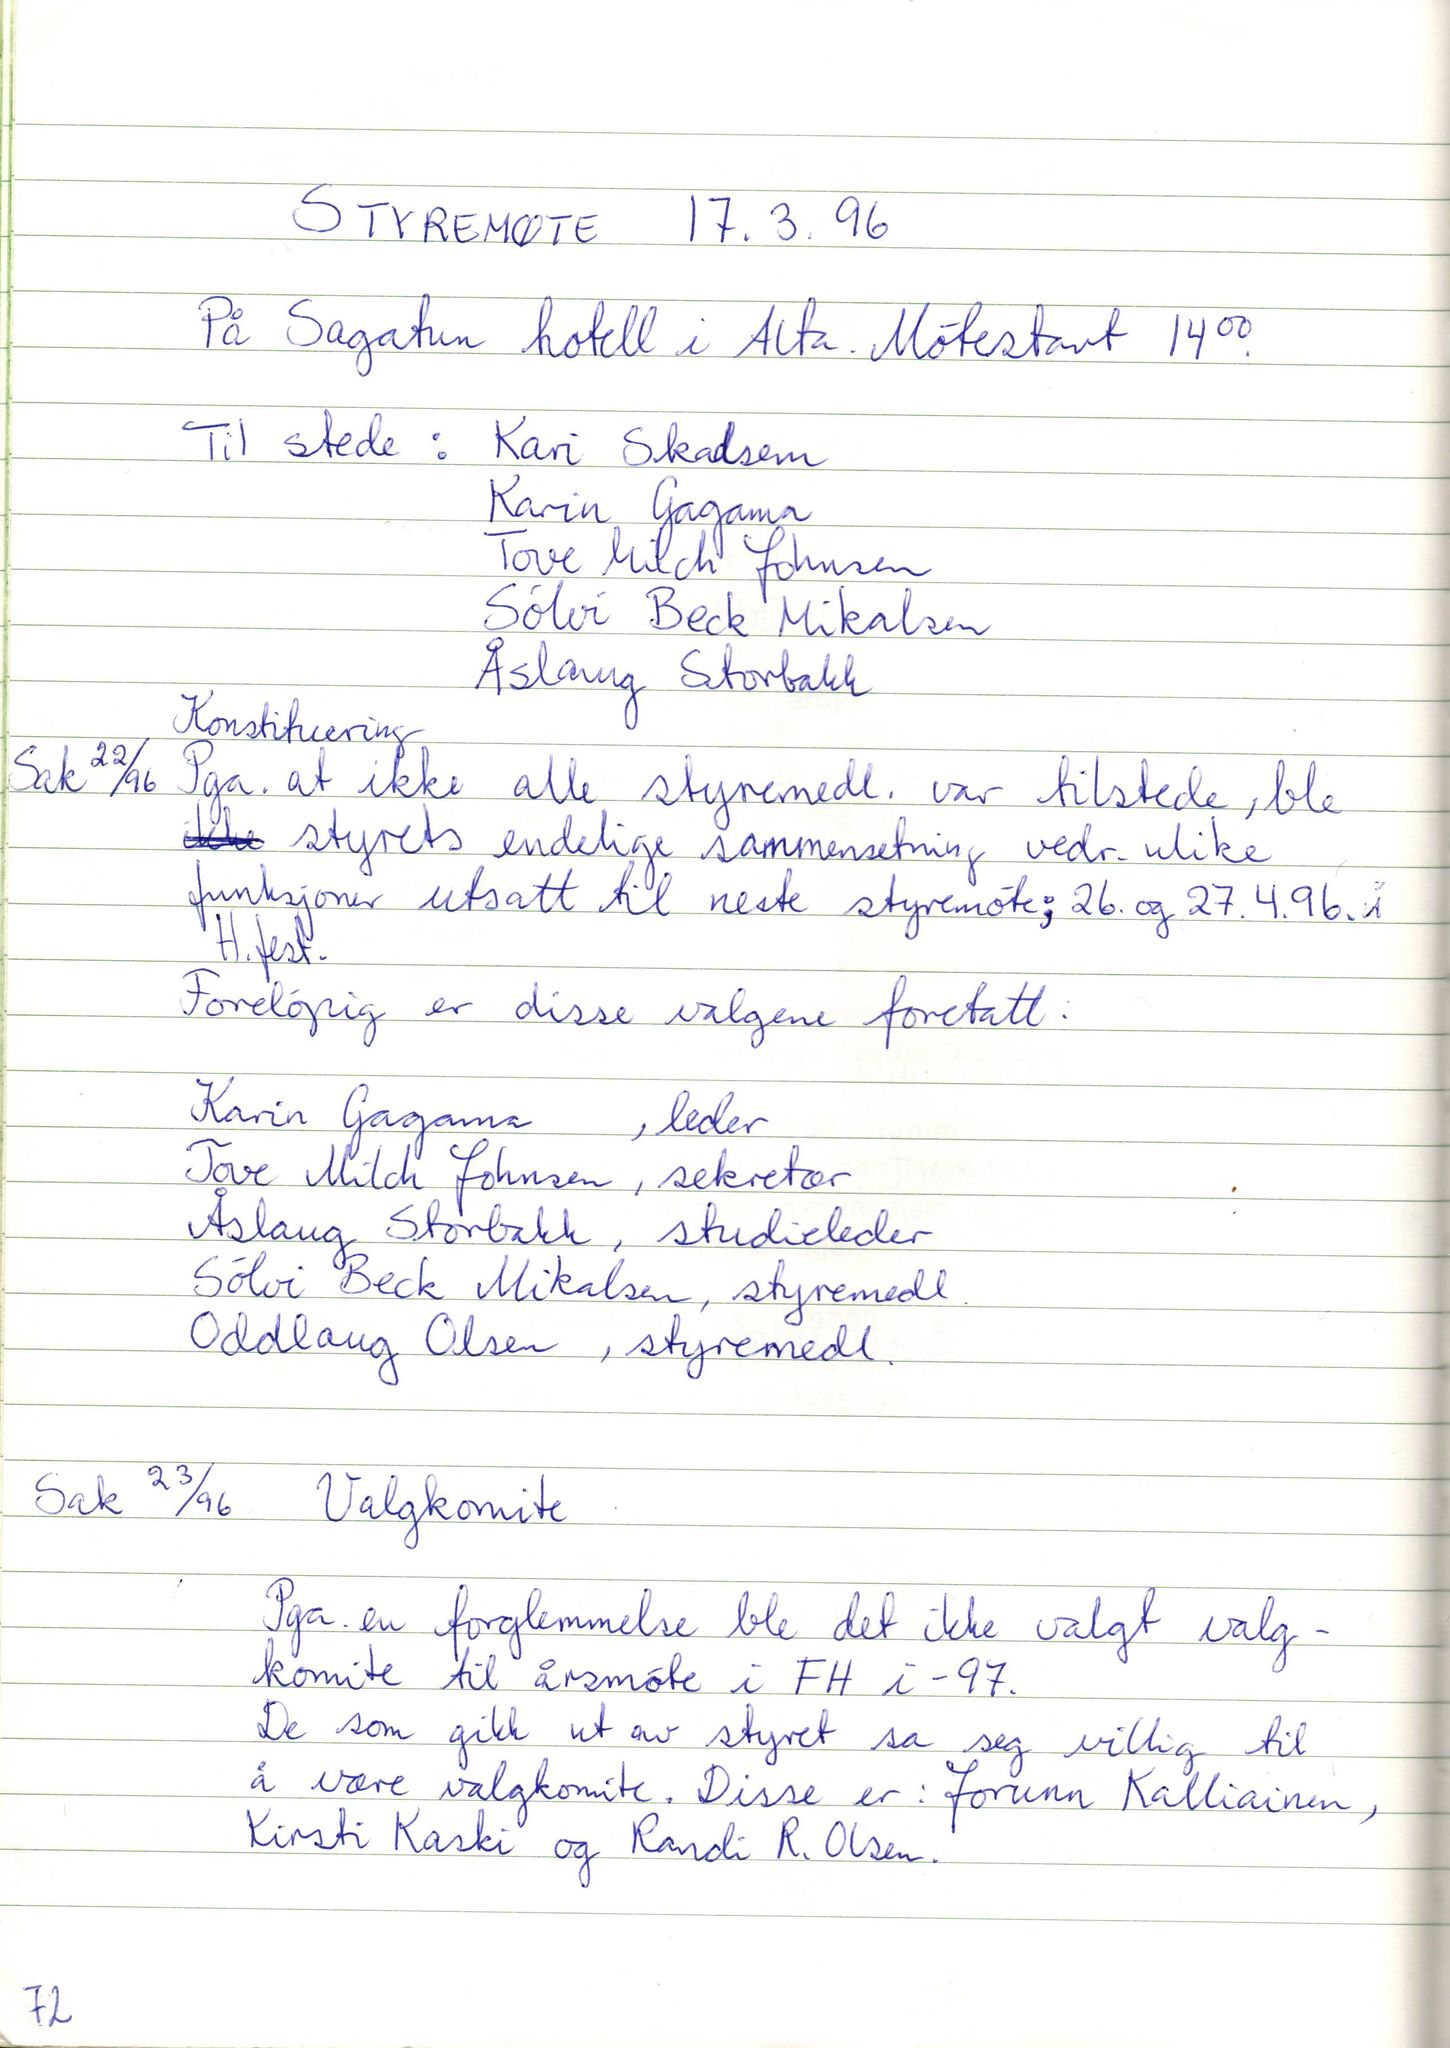 STYREMØTE 17.3.96
På Sagatun hotell i Alta. Møtestart 14⁰⁰.
Til stede : Kari Skadsem
Karin Gagama
Tove Milch Johnsen
Sólvi Beck Mikalsen
Åslaug Storbakk
Konstituering
Sak 22/96 Pga. at ikke alle styremedl. var tilstede, ble
ikke styrets endelige sammensetning vedr. ulike
funksjoner utsatt til neste styremóte; 26. og 27.4.96. i
H.fest.
Forelópig er disse valgene foretatt:
Karin Gagama , leder
Tove Milch Johnsen, sekretær
Åslaug Storbakk, studieleder
Sólvi Beck Mikalsen, styremedl.
Oddlaug Olsen , styremedl.
Sak 23/96 Valgkomite
Pga. en forglemmelse ble det ikke valgt valg-
komite til årsmóte i FH i -97.
De som gikk ut av styret sa seg villig til
å være valgkomite. Disse er: Jorunn Kalliainen,
Kirsti Kaski og Randi R. Olsen.
72